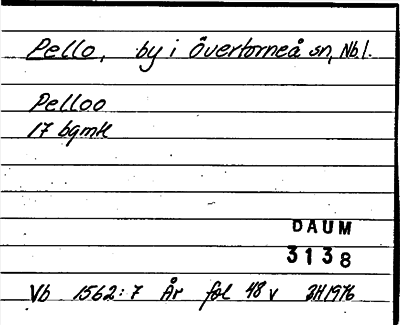 Pello, by i Övertorneå sn, Nb l.
Pelloo
17 bgmtl
DAUM
3138
Vb 1562:7 År fol 48 v 3H1976